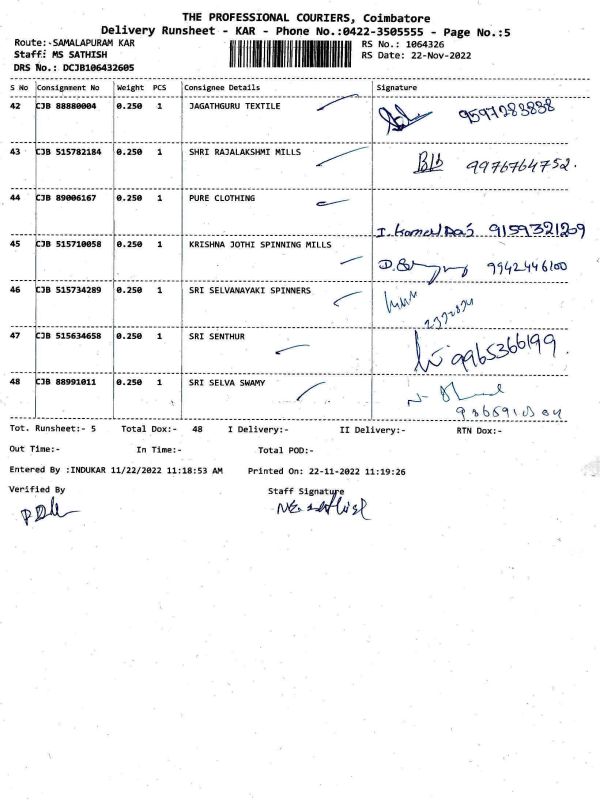 THE PROFESSIONAL COURIERS, Coimbatore
Delivery Runsheet - KAR - Phone No.:0422-3505555 - Page No.:5
Route:-SAMALAPURAM KAR RS No.: 1064326
Staff: MS SATHISH RS Date: 22-Nov-2022
DRS No.: DCJB106432605
S No Consignment No Weight PCS Consignee Details Signature
42 CJB 88880004 0.250 1 JAGATHGURU TEXTILE 9597283838
43 CJB 515782184 0.250 1 SHRI RAJALAKSHMI MILLS 9976764752.
44 CJB 89006167 0.250 1 PURE CLOTHING
I. Kamal Das 9159321209
45 CJB 515710058 0.250 1 KRISHNA JOTHI SPINNING MILLS
9942446100
46 CJB 515734289 0.250 1 SRI SELVANAYAKI SPINNERS
47 CJB 515634658 0.250 1 SRI SENTHUR 9965366199.
48 CJB 88991011 0.250 1 SRI SELVA SWAMY
Tot. Runsheet:- 5 Total Dox:- 48 I Delivery:- II Delivery:- RTN Dox:-
Out Time:- In Time:- Total POD:-
Entered By :INDUKAR 11/22/2022 11:18:53 AM Printed On: 22-11-2022 11:19:26
Verified By Staff Signature